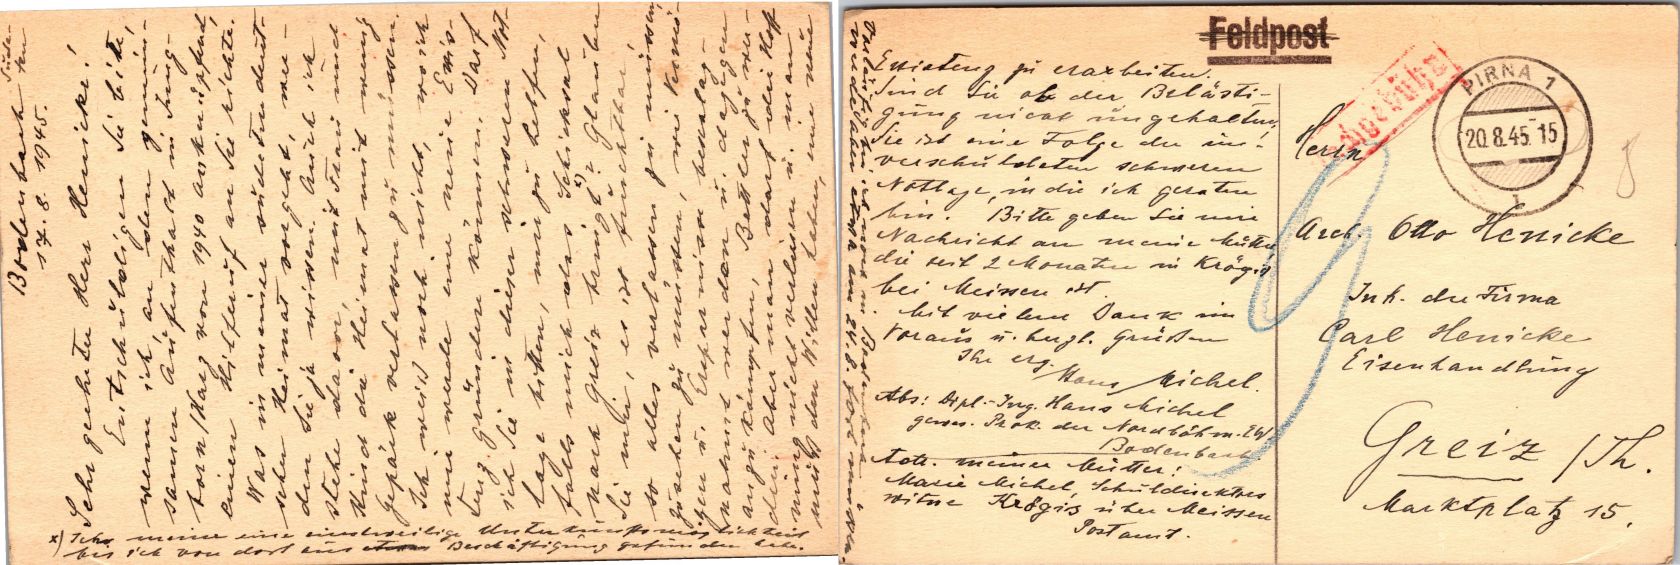 Bodenbach Sudeten
17.8.1945.
Sehr geehrter Herr Henicke!
Entschuldigen Sie bitte,
wenn ich an den gemein-
samen Aufenthalt in Tung-
born/Haag von 1940 anknüpfend,
einen Hilferuf an Sie richte.
Was in meiner sudetendeut-
schen Heimat vorgeht, wer-
den Sie ja wissen. Auch ich
stehe davor, mit Frau und
Kind die Heimat mit wenig
Gepäck verlassen zu müssen.
Ich weiß noch nicht, wo ich
mir werde eine neue Exis-
tenz gründen können. Darf
ich Sie in dieser schweren Not-
lage bitten, mir zu helfen,
falls mich das Schicksal
nach Greiz bringt? x) Glauben
Sie mir, es ist furchtbar,
so alles verlassen zu müssen,
zusehen zu müssen, wie Vermö-
gen u. Ersparnisse beschlag-
nahmt werden u. dagegen
anzukämpfen, Bettler zu wer-
den. Aber man darf den Kopf
nicht verlieren u. man
muß den Willen haben, eine neue
x) Ich meine eine einstweilige Unterkunftsmöglichkeit
bis ich von dort aus Beschäftigung gefunden habe.
Feldpost
PIRNA 1
20.8.45-15
Existenz zu erarbeiten.
Sind Sie ob der Belästi-
gung nicht ungehalten,
Sie ist eine Folge der un-
verschuldeten schweren
Notlage, in die ich geraten
bin. Bitte geben Sie mir
Nachricht an meine Mutter,
die seit 2 Monaten in Krögis
bei Meissen ist.
Mit vielem Dank im
Voraus u. herzl. Grüßen
Ihr erg.
Hans Michel.
Abs: Dipl.-Ing. Hans Michel
gewes. Prok. der Nordböhm. EW.
Bodenbach.
Adr. meiner Mutter:
Marie Michel Schuldirektors
witwe Krögis über Meissen
Postamt.
Herrn
Arch. Otto Henicke
Inh. der Firma
Carl Henicke
Eisenhandlung
Greiz /Th.
Marktplatz 15.